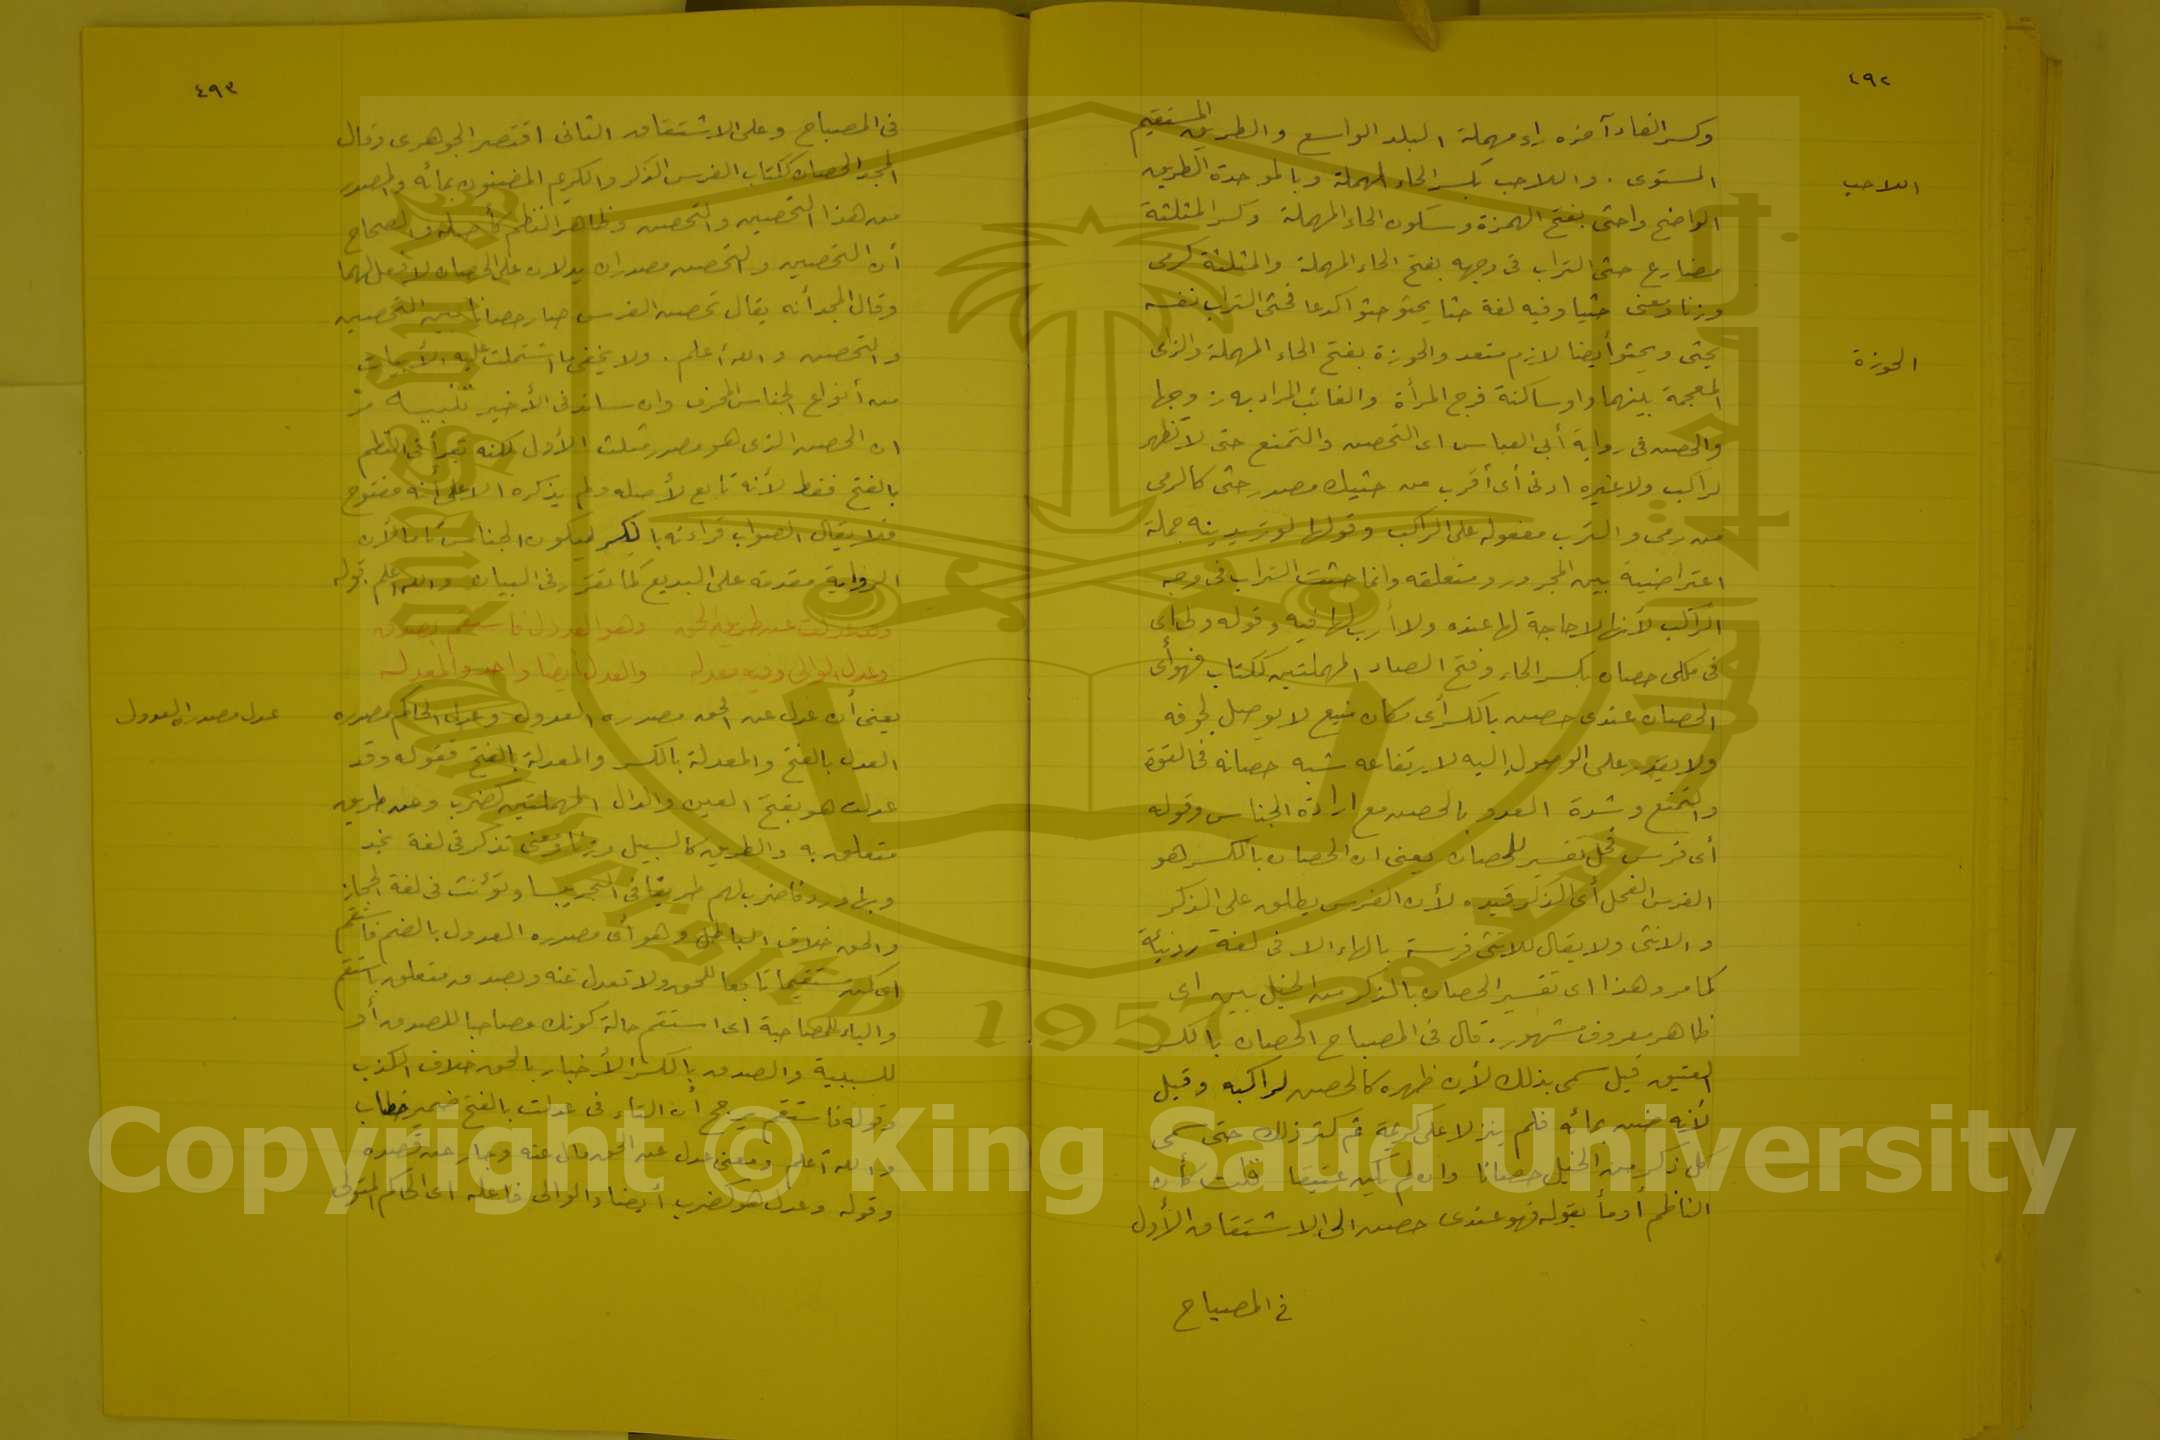 ٤٩٢
وكسر الفاء آخره راء مهملة البلد الواسع والطريق المستقيم
المستوى . واللاحب بكسر الحاء المهملة وبالموحدة الطريق
اللاحب
الواضح واحثى بفتح الهمزة وسكون الحاء المهملة وكسر المثلثة
مضارع حثى التراب فى وجهه بفتح الحاء المهملة والمثلثة كرمى
وزنا ومعنى حثيا وفيه لغة حثا يحثو حثوا كدعا فحثى التراب نفسه
يحثى ويحثو أيضا لازم متعد والحوزة بفتح الحاء المهملة والزاى
الحوزة
المعجمة بينهما واو ساكنة فرج المرأة والغائب المراد به زوجها
والحصن فى رواية أبى العباس اى التحصن والتمنع حتى لا تظهر
لراكب ولا غيره ادنى أى أقرب من حثيك مصدر حثى كالرمى
من رمى والترب مفعوله على الراكب وقولها لو تريدينه جملة
اعتراضية بين المجرور ومتعلقه وانما حثت التراب فى وجه
الراكب لأنها لا حاجة لها عنده ولا أرب لها فيه وقوله ولى اى
فى ملكى حصان بكسر الحاء وفتح الصاد المهملتين ككتاب فهو أى
الحصان عندى حصن بالكسر أى مكان منيع لا يوصل لجوفه
ولا يقدر على الوصول إليه لارتفاعه شبه حصانه فى القوة
والتمنع وشدة العدو بالحصن مع ارادة الجناس وقوله
أى فرس فحل تفسير للحصان يعنى ان الحصان بالكسر هو
الفرس الفحل أى الذكر قيده لأن الفرس يطلق على الذكر
والانثى ولا يقال للانثى فرسة بالهاء الا فى لغة رديئة
كما مر وهذا اى تفسير الحصان بالذكر من الخيل بين اى
ظاهر معروف مشهور . قال فى المصباح الحصان بالكسر
العتيق قيل سمى بذلك لأن ظهره كالحصن لراكبه وقيل
لأنه ضن بمائه فلم ينز الا على كريمة ثم كثر ذلك حتى سمى
كل ذكر من الخيل حصانا وان لم يكن عتيقا قلت كأن
الناظم أومأ بقوله فهو عندى حصن الى الاشتقاق الأول
فى المصباح
٤٩٣
فى المصباح وعلى الاشتقاق الثانى اقتصر الجوهرى وقال
المجد الحصان ككتاب الفرس الذكر والكريم المضنون بمائه والمصدر
من هذا التحصين والتحصن وظاهر النظم كأصله والصحاح
أن التحصين والتحصن مصدران يدلان على الحصان لا فعل لهما
وقال المجد أنه يقال تحصن الفرس صار حصانا بين التحصين
والتحصن والله أعلم . ولا يخفى ما اشتملت عليه الأبيات
من أنواع الجناس المحرف وان ساند فى الأخير تنبيه مر
ان الحصن الذى هو مصدر مثلث الأول لكنه يقرأ فى النظم
بالفتح فقط لأنه تابع لأصله ولم يذكره الا على أنه مفتوح
فلا يقال الصواب قراءته بالكسر ليكون الجناس تاما لأن
الرواية مقدمة على البديع كما تقرر فى البيان والله اعلم قوله
وقد عدلت عن طريق الحق وهو العدول فاستقم بصدق
وعدل الوالى وفيه معدله والعدل أيضا واحد والمعدله
يعنى أن عدل عن الحق مصدره العدول وعدل الحاكم مصدره
عدل مصدراه العدول
العدل بالفتح والمعدلة بالكسر والمعدلة بالفتح فقوله وقد
عدلت هو بفتح العين والدال المهملتين كضرب وعن طريق
متعلق به والطريق كالسبيل وزنا ومعنى تذكر فى لغة نجد
وبها ورد فاضرب لهم طريقا فى البحر يبسا وتؤنث فى لغة الحجاز
والحق خلاف الباطل وهو أى مصدره العدول بالضم فاستقم
اى كن مستقيما تابعا للحق ولا تعدل عنه وبصدق متعلق باستقم
والباء للمصاحبة اى استقم حالة كونك مصاحبا للصدق أو
للسببية والصدق بالكسر الأخبار بالحق خلاف الكذب
وقوله فاستقم يرجح أن التاء فى عدلت بالفتح ضمير خطاب
والله أعلم ومعنى عدل عن الحق مال عنه وجار عن قصده
وقوله وعدل هو كضرب أيضا والوالى فاعله اى الحاكم المتولى
Copyright © King Saud University
1957